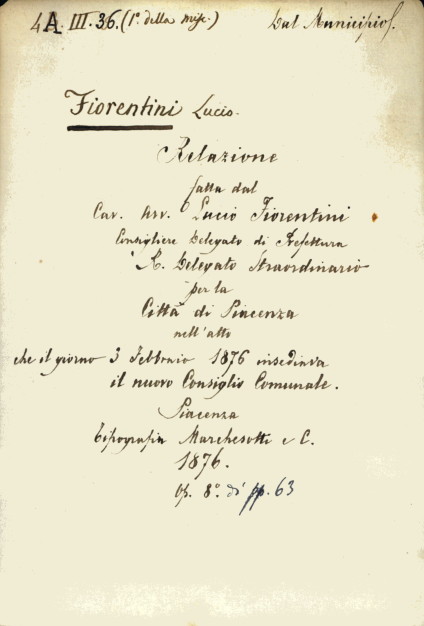 4A III. 36. (1ª. della misc.) Dal Municipio.
Fiorentini Lucio.
Relazione
fatta dal
Cav. Avv. Lucio Fiorentini
Consigliere Delegato di Prefettura
R. Delegato Straordinario
per la
Città di Piacenza
nell'atto
che il giorno 3 Febbraio 1876 insediava
il nuovo Consiglio Comunale.
Piacenza
Tipografia Marchesotti e C.
1876.
Op. 8º. di pp. 63